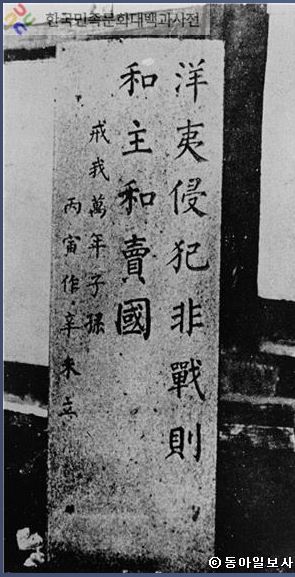 한국민족문화대백과사전
洋夷侵犯非戰則
和主和賣國
戒我萬年子孫
丙寅作辛未立
© 동아일보사